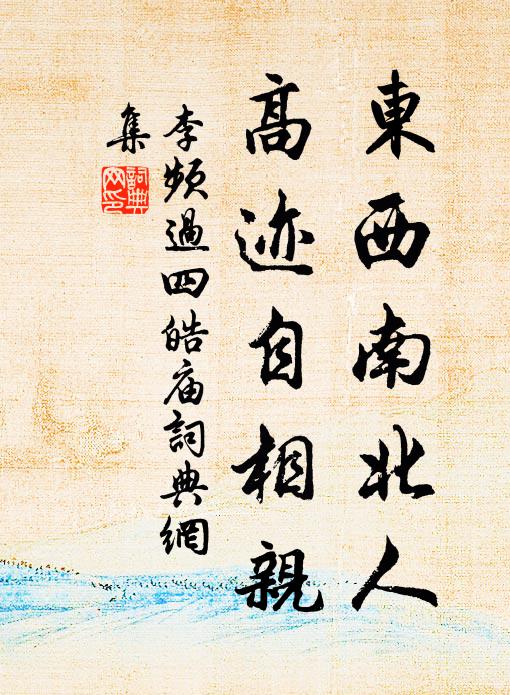 東西南北人
高迹自相親
李頻過四皓庙詞典網
集
詞典网印